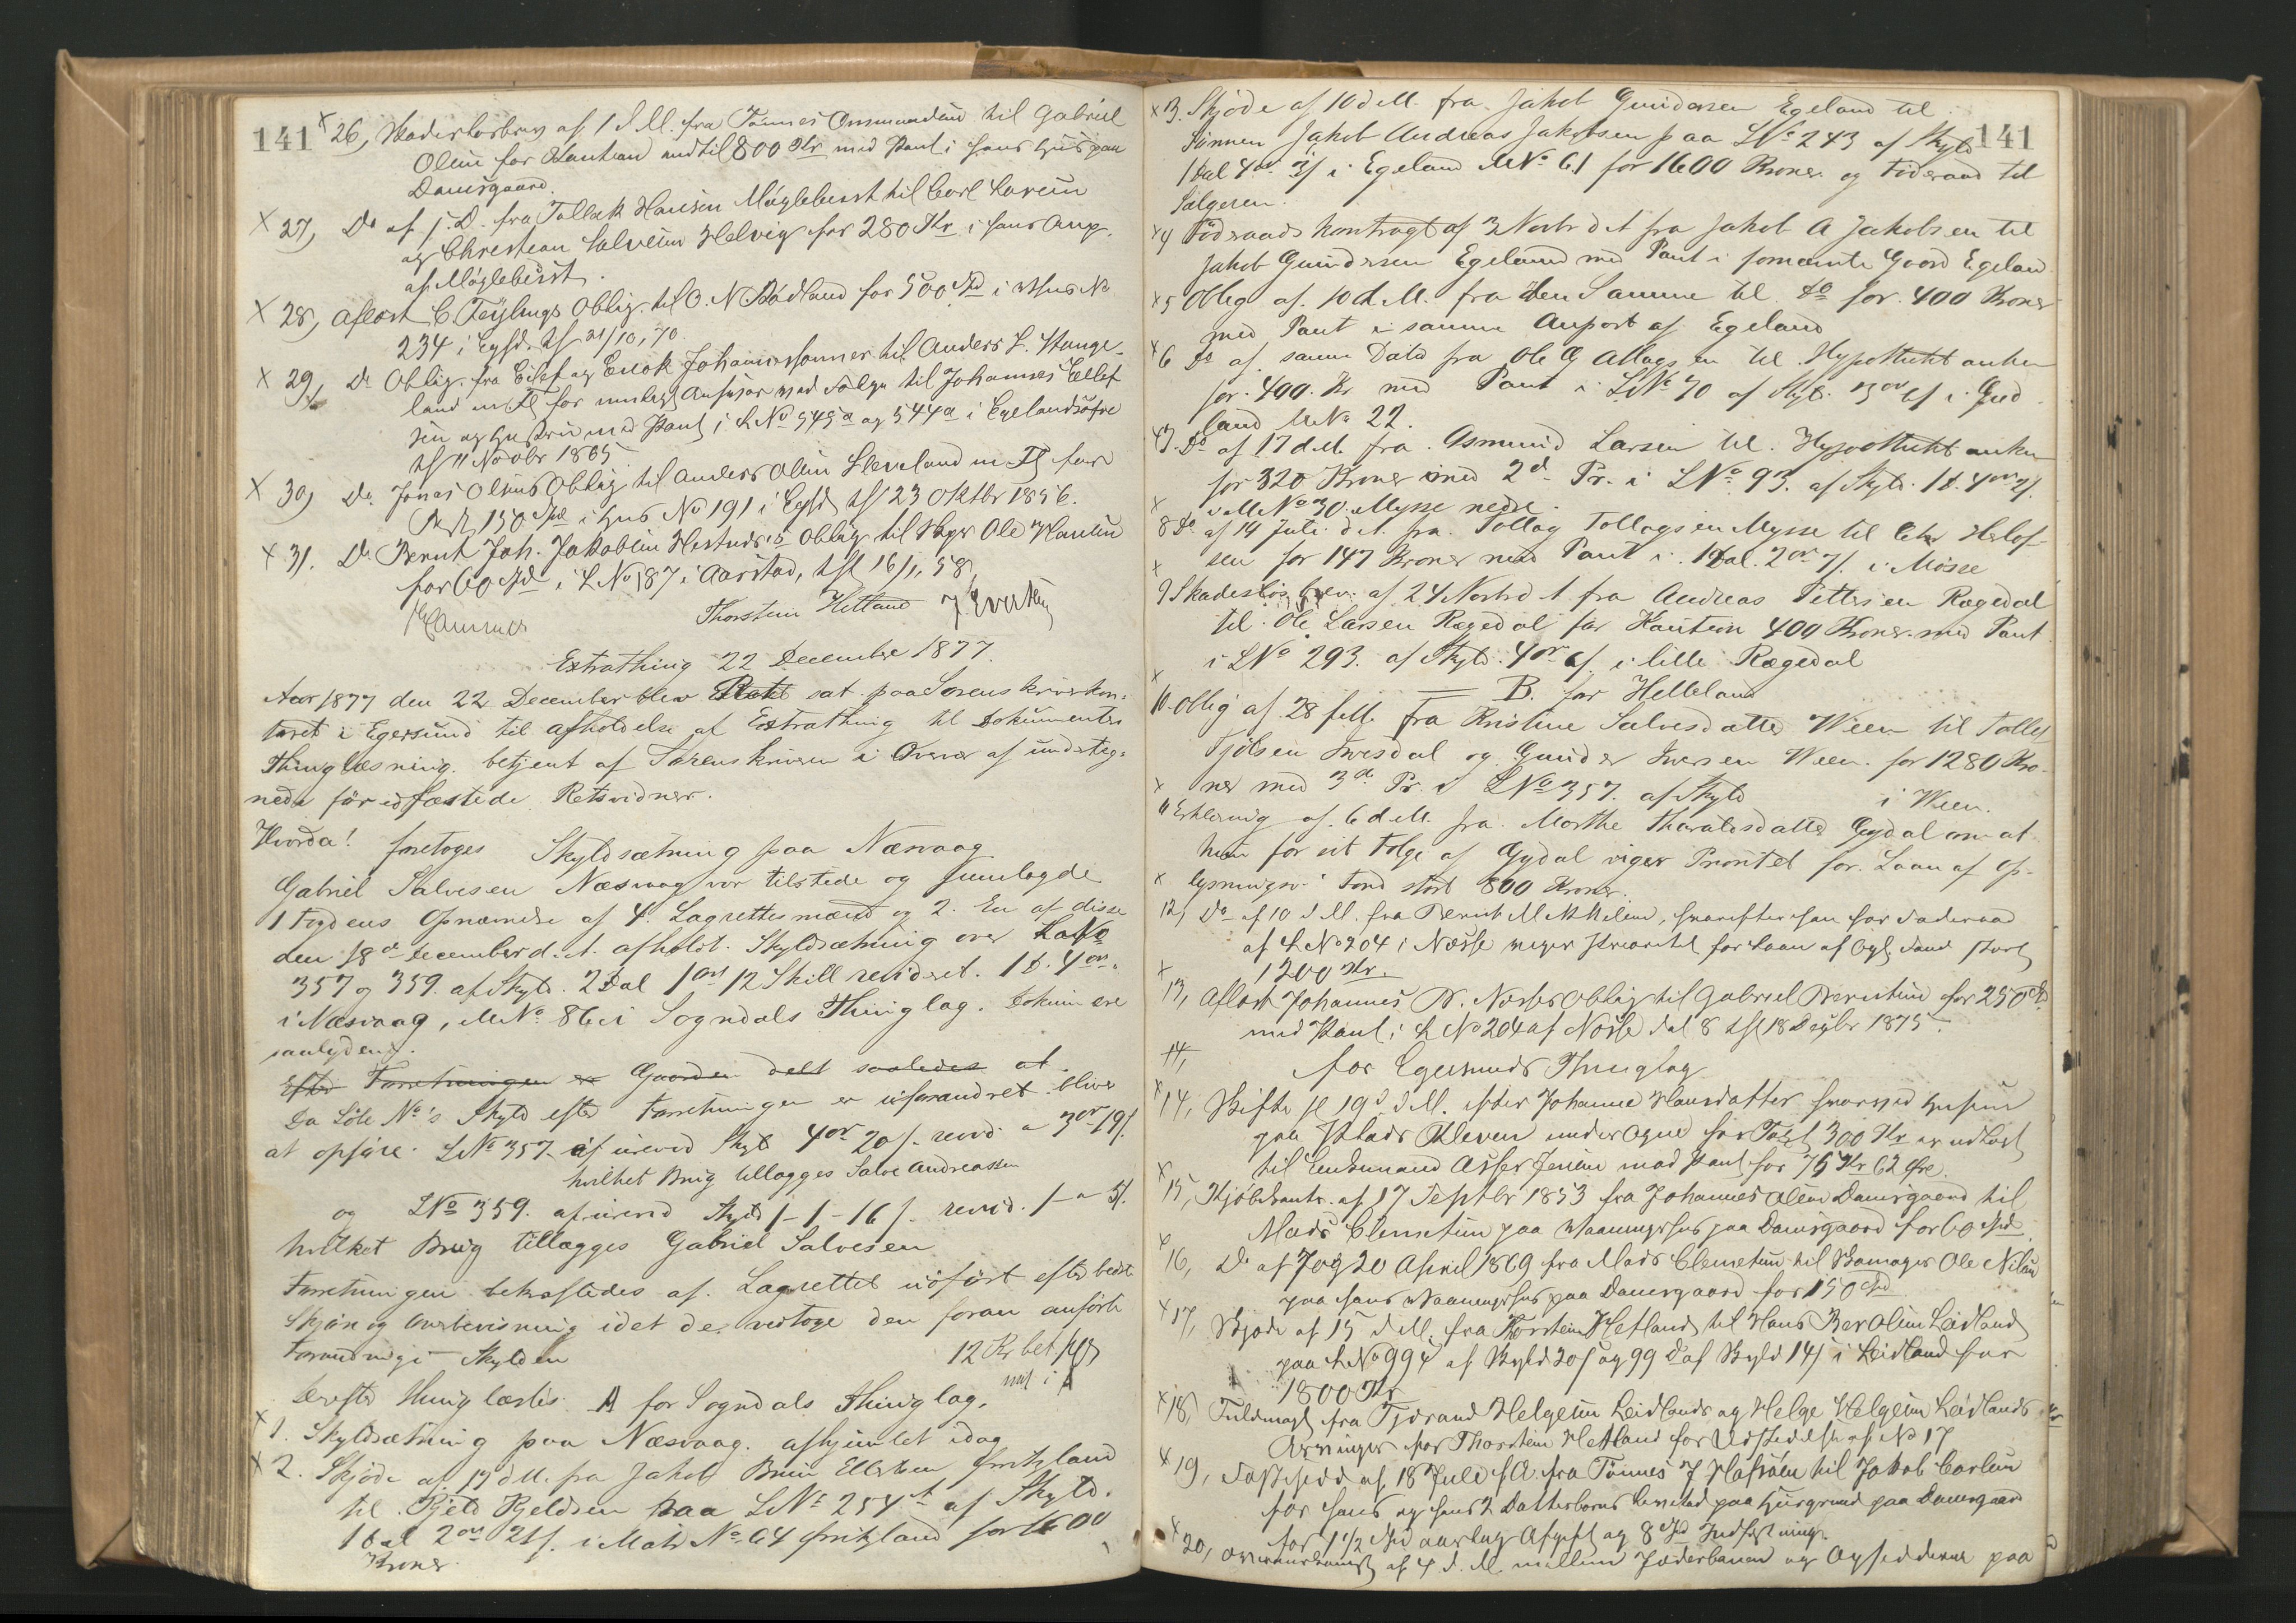 141
26, Skadesløsbrev af 1 d M. fra Tønnes Ommundsen til Gabriel
Olsen for Kaution indtil 800 Kr med Pant i hans Hus paa
Damsgaard.
27, Do af s. D. fra Tollak Hansen Møglebust til Carl Larsen
og Christian Salvesen Helvig for 280 Kr i hans Anp.
af Møglebust.
28, Aflæst C. Feylings Oblig. til O. N. Rødland for 500 Spd i Hus No
234 i Egsd. tgl 21/10, 70
29, Do Oblig. fra Eilef og Enok Johannessønner til Anders L. Stange-
land m Fl for Ansvar med Salg til Johannes Ellef
sen og Hustru med Pant i L No 545a og 544a i Egelandsøfre
tgl 11 Novbr 1865
30, Do Jonas Olsens Oblig til Anders Olsen Sleveland m Fl for
150 Spd i Hus No 191 i Egsd tgl 23 Oktbr 1856.
31. Do Bernt Joh. Jakobsen Hestnes's Oblig til Skpr Ole Hansen
for 60 Spd i L No 87 i Aarstad, tgl 16/1, 58,
Thorstein Hetland
Extrathing 22 December 1877.
Aar 1877 den 22 December blev Retet sat paa Sorenskriverkon-
toret i Egersund til afholdelse af Extrathing til Dokumenters
Thinglæsning. betjent af Sorenskriveren i Overvær af underteg-
nede før edfæstede Retsvidner.
Hvorda! foretoges Skyldsætning paa Næsvaag
Gabriel Salvesen Næsvaag var tilstede og fremlagde
1 Fogdens Opnævnelse af 4 Lagrettesmænd og 2. En af disse
den 18de December d. A. afholdt. Skyldsætning over LøbNo
357 og 359. af Skyld. 2 Dal 1 Ort 12 Skill revideret. 1 D. 4 ort.
i Næsvaag, MNo 86 i Sogndals Thinglag. Dokum ere
saalydende.
Efter Forretningen er Gaarden delt saaledes at
Da Løbe No's Skyld efter Forretningen er uforandret bliver
at opføre. LNo 357. af urevid Skyld 4 ort 20 s. revid. a 3 ort 19 s.
hvilket Brug tillægges Salve Andreassen
og LNo 359. af urevid Skyld 1-1-16 s. revid. 1 - a 5 s.
hvilket Brug tillægges Gabriel Salvesen
Forretningen bekræftedes af. Lagrettet udført efter bedste
Skjøn og Overbevisning idet de vedtoge den foran anførte
Forandring i Skylden
12 Kr bet
Derefter thinglæstes. A for Sogndals Thinglag.
1. Skyldsætning paa Næsvaag. afhjemlet idag
2. Skjøde af 19 d M. fra Jakob Bruun Ellefsen Fritzland
til Kjeld Kjeldsen paa LNo 254 af Skyld.
1 Dal 2 ort 21 s. i Matr No 64 Fritzland for 1600
Kroner.
141
3. Skjøde af 10 d M. fra Jakob Gundersen Egeland til
Sønnen Jakob Andreas Jakobsen paa LNo 243 af Skyld
1 Dal 4 ort s i Egeland MNo 61 for 1600 Kroner og Føderaad til
Sælgeren.
4 Føderaads Kontragt af 3 Novbr d A fra Jakob A Jakobsen til
Jakob Gundersen Egeland med Pant i fornævnte Gaard Egeland
5 Oblig af. 10 d M. fra den Samme til do for 400 Kroner
med Pant i samme Anpart af Egeland
6 Do af samme Dato fra Ole G Aslagsen til Hypotheksbanken
for 400. Kr med Pant i LNo 70 af Skyld. 3 ort 6 s i Gud
land MNo 22.
7. Do af 17 d M. fra Asmund Larsen til. Hypotheksbanken
for 320 Kroner med 2d Pr. i LNo 93. af Skyld 1 D. 4 ort 2 s
MNo 30. Mysse nedre.
8 Do af 14 Juli d A. fra Tollag Tollagsen Mysse til Chr Helof-
sen for 147 Kroner med Pant i 1 Dal. 2 ort 7 s. i Mösse
9 Skadesløsbrev. af 24 Novbr d A fra Andreas Pettersen Rægedal
til Ole Larsen Rægedal for Kaution 400 Kroner med Pant
i LNo 293. af Skyld. 4 ort 6 s. i lille Rægedal
B. for Helleland
10. Oblig af 28 f M. fra Kristine Salvesdatter Ween til Tollef
Tjölsen Ivesdal og Gunder Iversen Ween. for 1280 Kro-
ner med 3de Pr. i LNo 357. af Skyld i Ween.
11 Erklæring af 6 d M. fra Marthe Tharaldsdatter Gydal om at
hun for sit Folge af Gydal viger Prioritet for. Laan af Op-
lysningsv. Fond stort 800 Kroner.
12, Do af 10 d M. fra Bernt M Mikkelsen, hvorefter han for Føderaad
af L No 204 i Næsse viger Prioritet for Laan af Opl. Fond stort
1200 Kr.
13, Aflæst Johannes B. Næsses Oblig til Gabriel Berntsen for 250 Spd
med Pant i L No 204 af Næsse dat 8 tgl 18 Septbr 1875.
14,
for Egersunds Thinglag
14, Skifte sl 19 d M. efter Johanne Hansdatter hvorved Husene
paa Plads Kleven under Ogne for Taxt 300 Kr er udlagt
til Enkemand Asser Jensen mod Pant for 75 Kr 62 Øre.
15, Kjøbekontr. af 17 Septbr 1853 fra Johannes Olsen Damsgaard til
Mads Clemetsen paa Vaaningshus paa Damsgaard for 60 Spd
16, Do af Jog 20 April 1869 fra Mads Clemetsen til Skomager Ole Nilsen
paa hans Vaaningshus paa Damsgaard for 150 Spd
17, Skjøde af 15 d M. fra Thorstein Hetland til Hans Ber Olsen Leidland
paa L No 99 c af Skyld 20 s og 99 d af Skyld 14 s i Leidland for
1800 Kr
18, Fuldmagt fra Tjerand Helgesen Leidlands og Helge Helgesen Leidlands
Arvinger for Thorstein Hetland for Udstedelse af No 17
19, Fæstesedd af 18 Juli f A. fra Tønnes J Hafsøen til Jakob Carlsen
for hans og hans 2 Datterbørns Levetid paa Husgrund paa Damsgaard
for 1 1/2 Spd aarlig Afgift og 8 Spd Indfæstning.
20, Overenskomst af 4 d. M. mellem Jæderbanen og Opsidderne paa